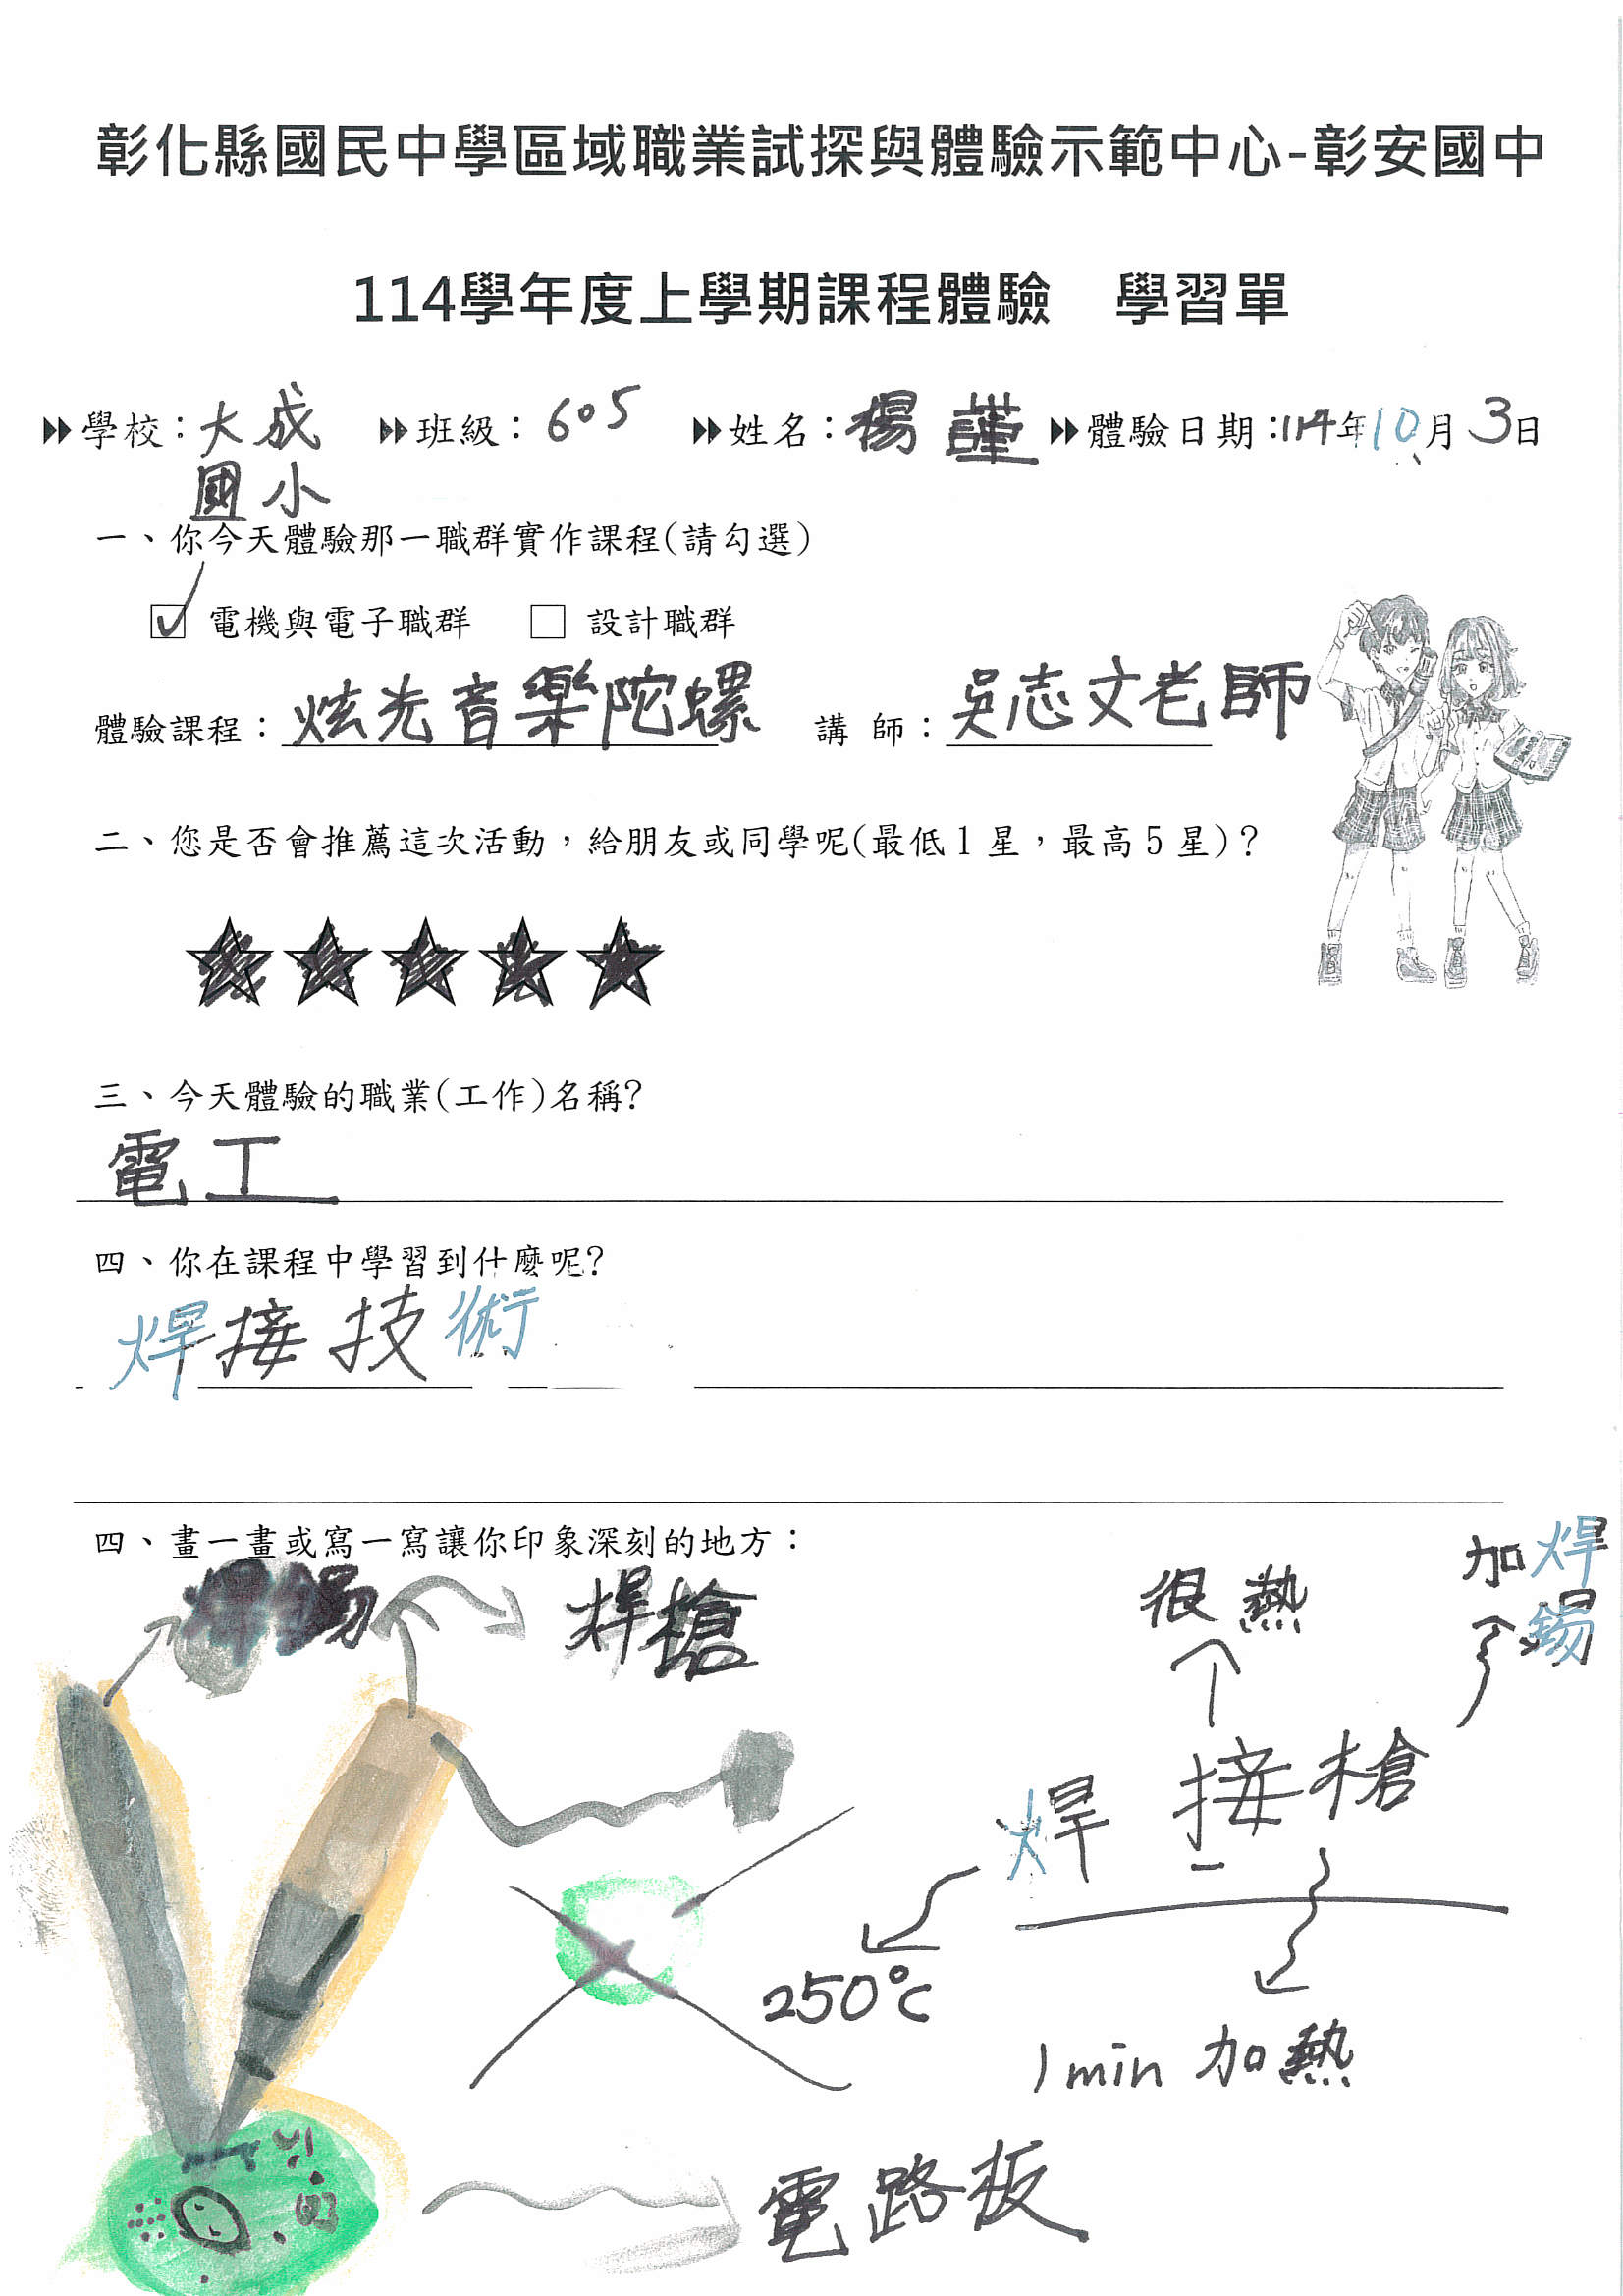 彰化縣國民中學區域職業試探與體驗示範中心-彰安國中
114學年度上學期課程體驗　學習單
學校：大成國小 班級：605 姓名：楊謹 體驗日期：114年10月3日
一、你今天體驗那一職群實作課程(請勾選)
☑ 電機與電子職群 □ 設計職群
體驗課程：炫光音樂陀螺 講 師：吳志文老師
二、您是否會推薦這次活動，給朋友或同學呢(最低1星，最高5星)？
三、今天體驗的職業(工作)名稱?
電工
四、你在課程中學習到什麼呢?
焊接技術
四、畫一畫或寫一寫讓你印象深刻的地方：
焊錫
焊槍
很熱
加焊錫
焊接槍
250°C
1min 加熱
電路板